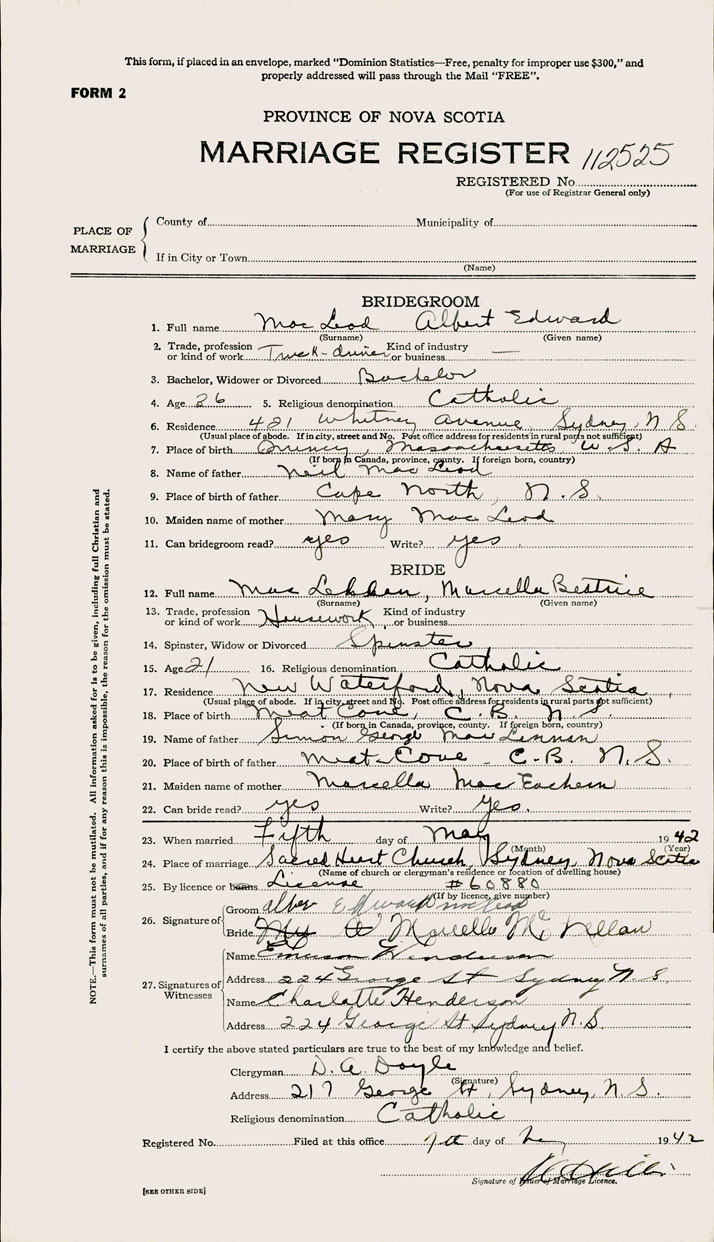 This form, if placed in an envelope, marked "Dominion Statistics—Free, penalty for improper use $300," and
properly addressed will pass through the Mail "FREE".
FORM 2
PROVINCE OF NOVA SCOTIA
MARRIAGE REGISTER 112525
REGISTERED No.
(For use of Registrar General only)
PLACE OF MARRIAGE
County of Municipality of
If in City or Town
(Name)
BRIDEGROOM
1. Full name Mac Leod Albert Edward
(Surname) (Given name)
2. Trade, profession or kind of work Truck-driver Kind of industry or business —
3. Bachelor, Widower or Divorced Bachelor
4. Age 26 5. Religious denomination Catholic
6. Residence 421 Whitney Avenue Sydney, N.S.
(Usual place of abode. If in city, street and No. Post office address for residents in rural parts not sufficient)
7. Place of birth Quincy, Massachusetts U.S.A
(If born in Canada, province, county. If foreign born, country)
8. Name of father Neil Mac Leod
9. Place of birth of father Cape North, N.S.
10. Maiden name of mother Mary Mac Leod
11. Can bridegroom read? yes Write? yes.
BRIDE
12. Full name Mac Lellan, Marcella Beatrice
(Surname) (Given name)
13. Trade, profession or kind of work Housework Kind of industry or business
14. Spinster, Widow or Divorced Spinster
15. Age 21 16. Religious denomination Catholic
17. Residence New Waterford, Nova Scotia
(Usual place of abode. If in city, street and No. Post office address for residents in rural parts not sufficient)
18. Place of birth Meat Cove, C.B. N.S.
(If born in Canada, province, county. If foreign born, country)
19. Name of father Simon George Mac Lennan
20. Place of birth of father Meat-Cove - C-B. N.S.
21. Maiden name of mother Marcella Mac Eachern
22. Can bride read? yes Write? yes.
23. When married Fifth day of May 1942
(Month) (Year)
24. Place of marriage Sacred Heart Church, Sydney, Nova Scotia
(Name of church or clergyman's residence or location of dwelling house)
25. By licence or banns License #60880
(If by licence, give number)
26. Signature of
Groom Albert Edward McLeod
Bride Marcella Mc Lellan
27. Signatures of Witnesses
Name Henderson
Address 224 George St Sydney N.S.
Name Charlotte Henderson
Address 224 George St Sydney N.S.
I certify the above stated particulars are true to the best of my knowledge and belief.
Clergyman D. A. Doyle
(Signature)
Address 217 George St, Sydney, N.S.
Religious denomination Catholic
Registered No. Filed at this office 7th day of 1942
Signature of Issuer of Marriage Licence.
[SEE OTHER SIDE]
NOTE.—This form must not be mutilated. All information asked for is to be given, including full Christian and
surnames of all parties, and if for any reason this is impossible, the reason for the omission must be stated.